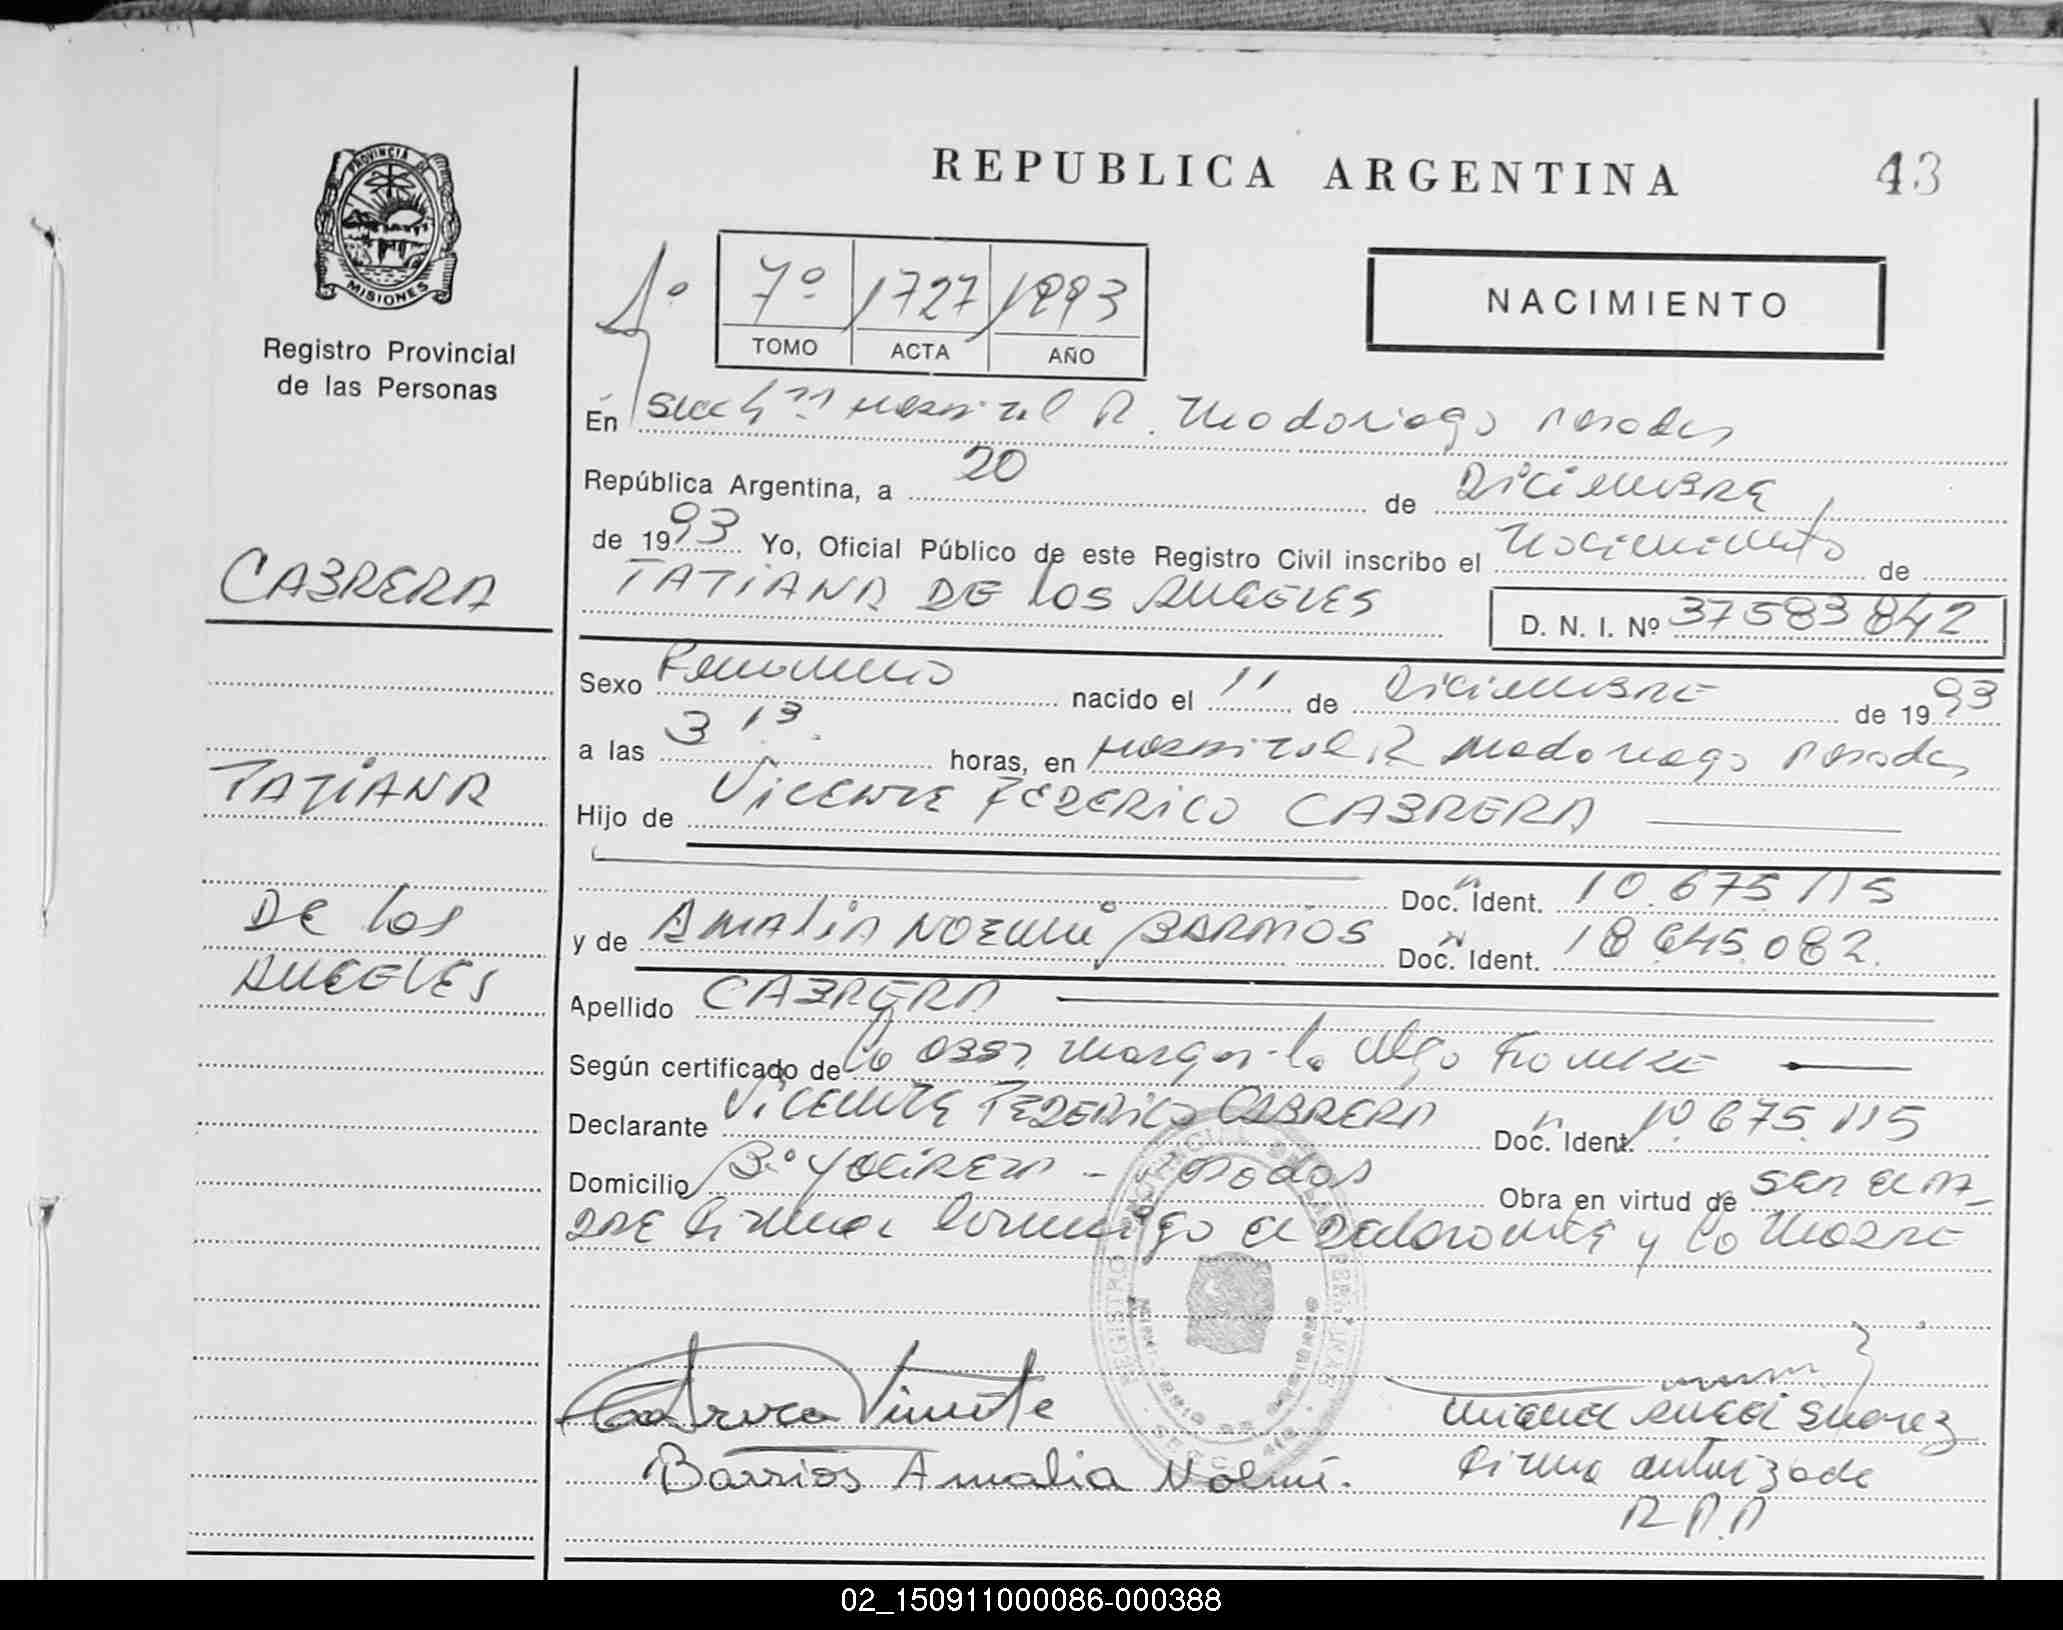 REPUBLICA ARGENTINA
43
PROVINCIA DE
MISIONES
Registro Provincial
de las Personas
1º
7º 1727 1993
TOMO ACTA AÑO
NACIMIENTO
En Secc 4ª Hospital R. Madariaga Posadas
República Argentina, a 20 de Diciembre
de 1993 Yo, Oficial Público de este Registro Civil inscribo el Nacimiento de
TATIANA DE los ANGELES
D. N. I. Nº 37583842
CABRERA
TATIANA
DE los
ANGELES
Sexo Femenino nacido el 11 de Diciembre de 1993
a las 3 13. horas, en Hospital R Madariaga Posadas
Hijo de VICENTE FEDERICO CABRERA
Doc. Ident. 10.675.115
y de AMALIA NOEMI BARRIOS Doc. Ident. 18.645.082.
Apellido CABRERA
Según certificado de la Obst Margarita Olga
Declarante VICENTE FEDERICO CABRERA Doc. Ident. 10.675.115
Domicilio Bº Yacireta - Posadas Obra en virtud de ser el PA-
DRE firman conmigo el Declarante y la Madre
Cabrera Vicente
Barrios Amalia Noemi.
Miguel Angel Suarez
firma autorizada
R.P.P
02_150911000086-000388